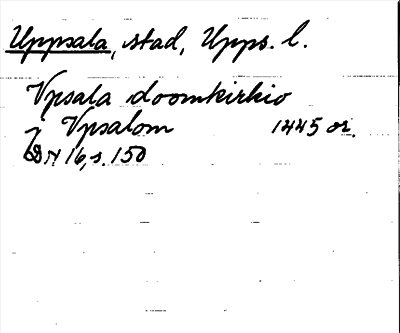 Uppsala, stad, Upps. l.
Vpsala doomkirkio
j Vpsalom 1445 or.
DN 16, s. 150